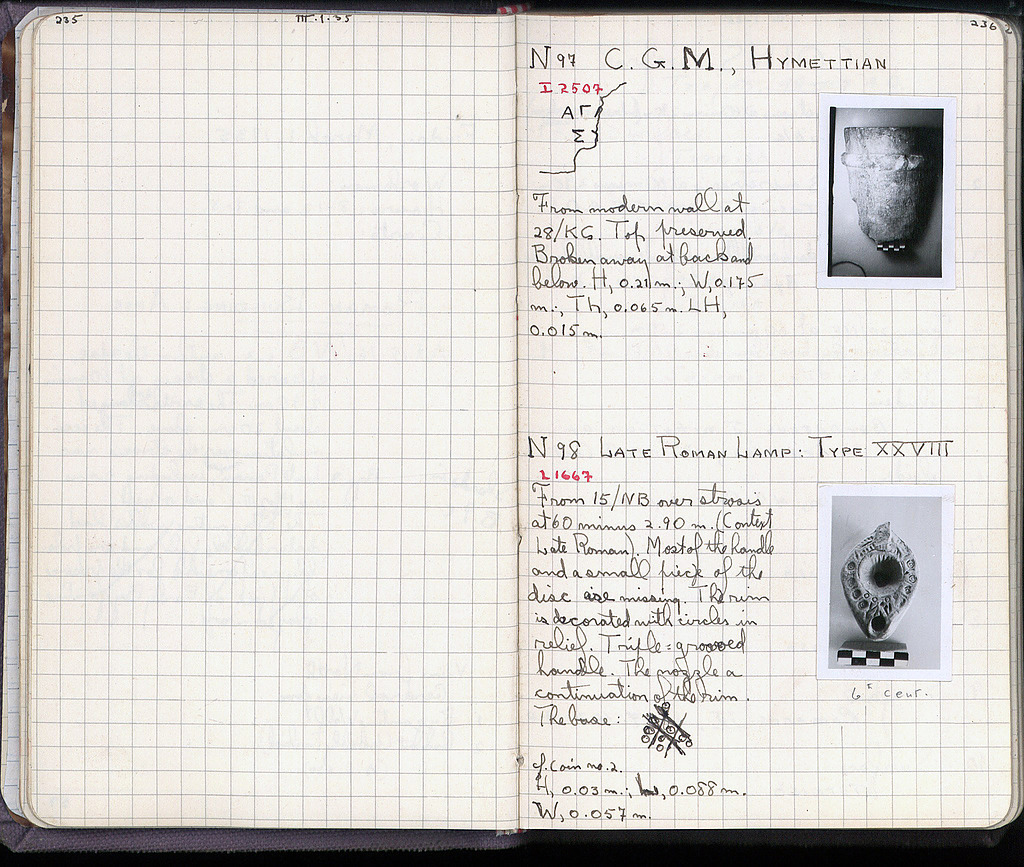 235
III.1.35
236
N 97 C. G. M., HYMETTIAN
I 2507
ΑΓ
Σ
From modern wall at
28/ΚG. Top preserved.
Broken away at back and
below. H, 0.21 m.; W, 0.175
m.; Th, 0.065 m. LH,
0.015 m.
N 98 LATE ROMAN LAMP: TYPE XXVIII
L 1667
From 15/NB over strosis
at 60 minus 2.90 m. (Context
Late Roman). Most of the handle
and a small piece of the
disc are missing. The rim
is decorated with circles in
relief. Triple-grooved
handle. The nozzle a
continuation of the rim.
The base:
cf. Coin no. 2.
H, 0.03 m.; L, 0.088 m.
W, 0.057 m.
6th cent.